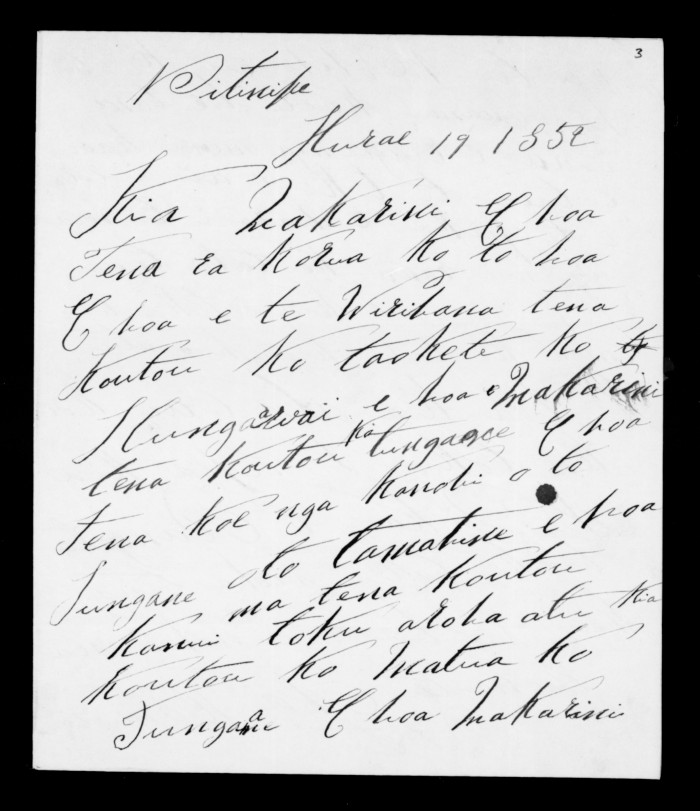 3
Pitinipe
Hurae 19 1852
Kia Makarini E hoa
Tena ra Korua Ko to hoa
E hoa e te Wirihana tena
Koutou Ko taokete Ko
Hungawai e hoa e Makarini
tena Koutou Ko tungane E hoa
Tena Koe nga Kanohi o to
Tungane o to tamahine e hoa
ma tena Koutou
Kanui toku aroha atu Kia
Koutou Ko Matua Ko
Tungane E hoa Makarini